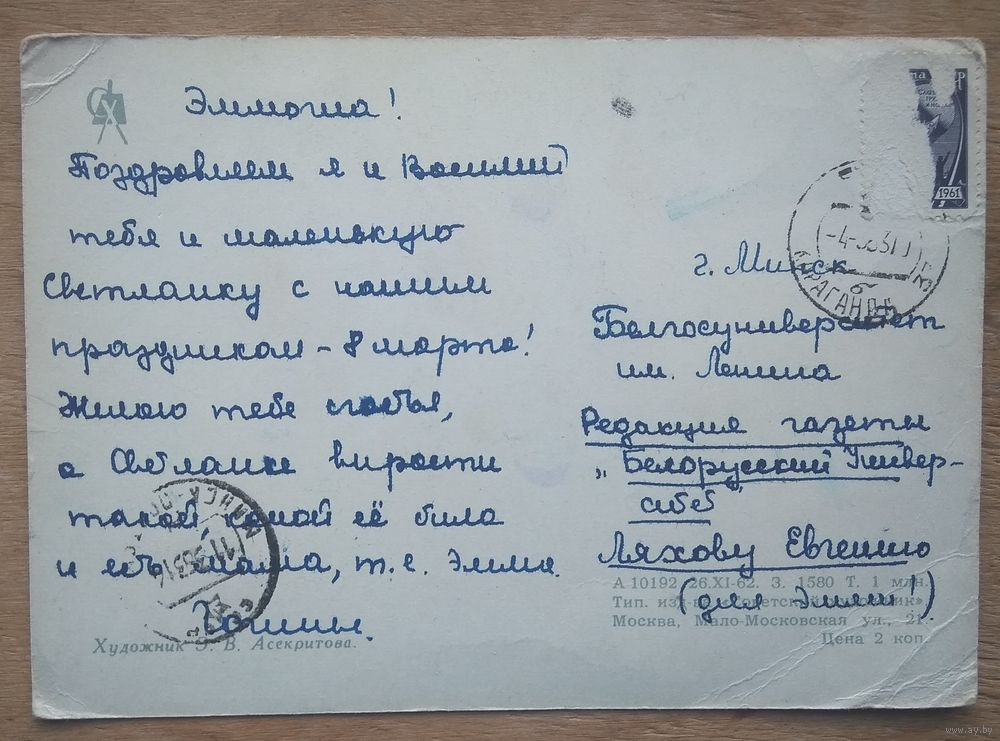 Эммочка!
Поздравляем я и Василий
тебя и маленькую
Светланку с нашим
праздником - 8 марта!
Желаю тебе счастья,
а Светланке вирости
такой, какой её била
и есть мама, т.е. Эмма.
Художник Э. В. Асекритова.
1961
КАРАГАНДА
г. Минск
Белгосуниверситет
им. Ленина
Редакция газеты
„Белорусский Универ-
ситет"
Ляхову Евгению
(для Эммы!)
А 10192 26.XI-62. З. 1580 Т. 1 млн.
Тип. изд-ва «Советский художник».
Москва, Мало-Московская ул., 21.
Цена 2 коп.
МИНСК
www.ay.by